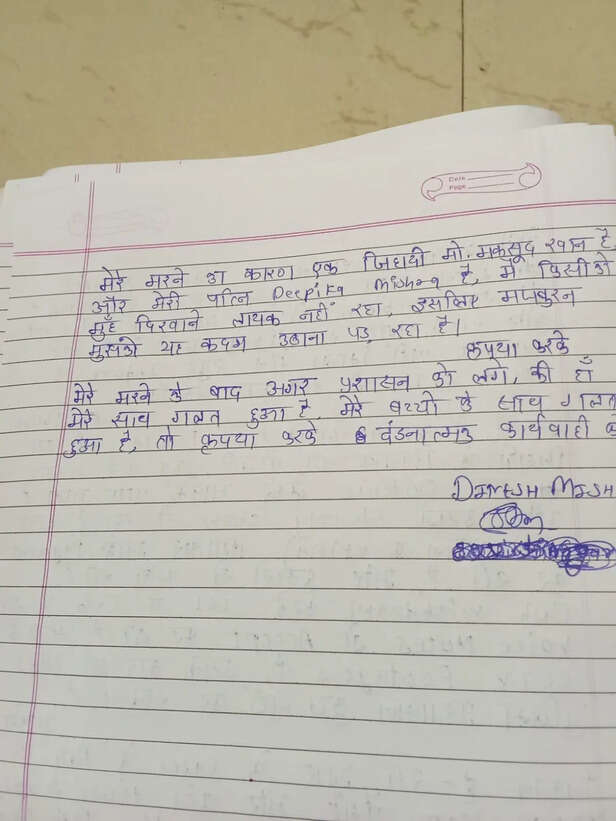 Date
Page
मेरे मरने का कारण एक जिहादी मो. मकसूद खान है
और मेरी पत्नि Deepika Mishra है, में किसीको
मुँह दिखाने लायक नहीं रहा, इसलिए मजबूरन
मुझको यह कदम उठाना पड़ रहा है।
कृपया करके
मेरे मरने के बाद अगर प्रशासन को लगे, की हाँ
मेरे साथ गलत हुआ है, मेरे बच्चो के साथ गलत
हुआ है, तो कृपया करके दंडनात्मक कार्यवाही
DINESH MISH